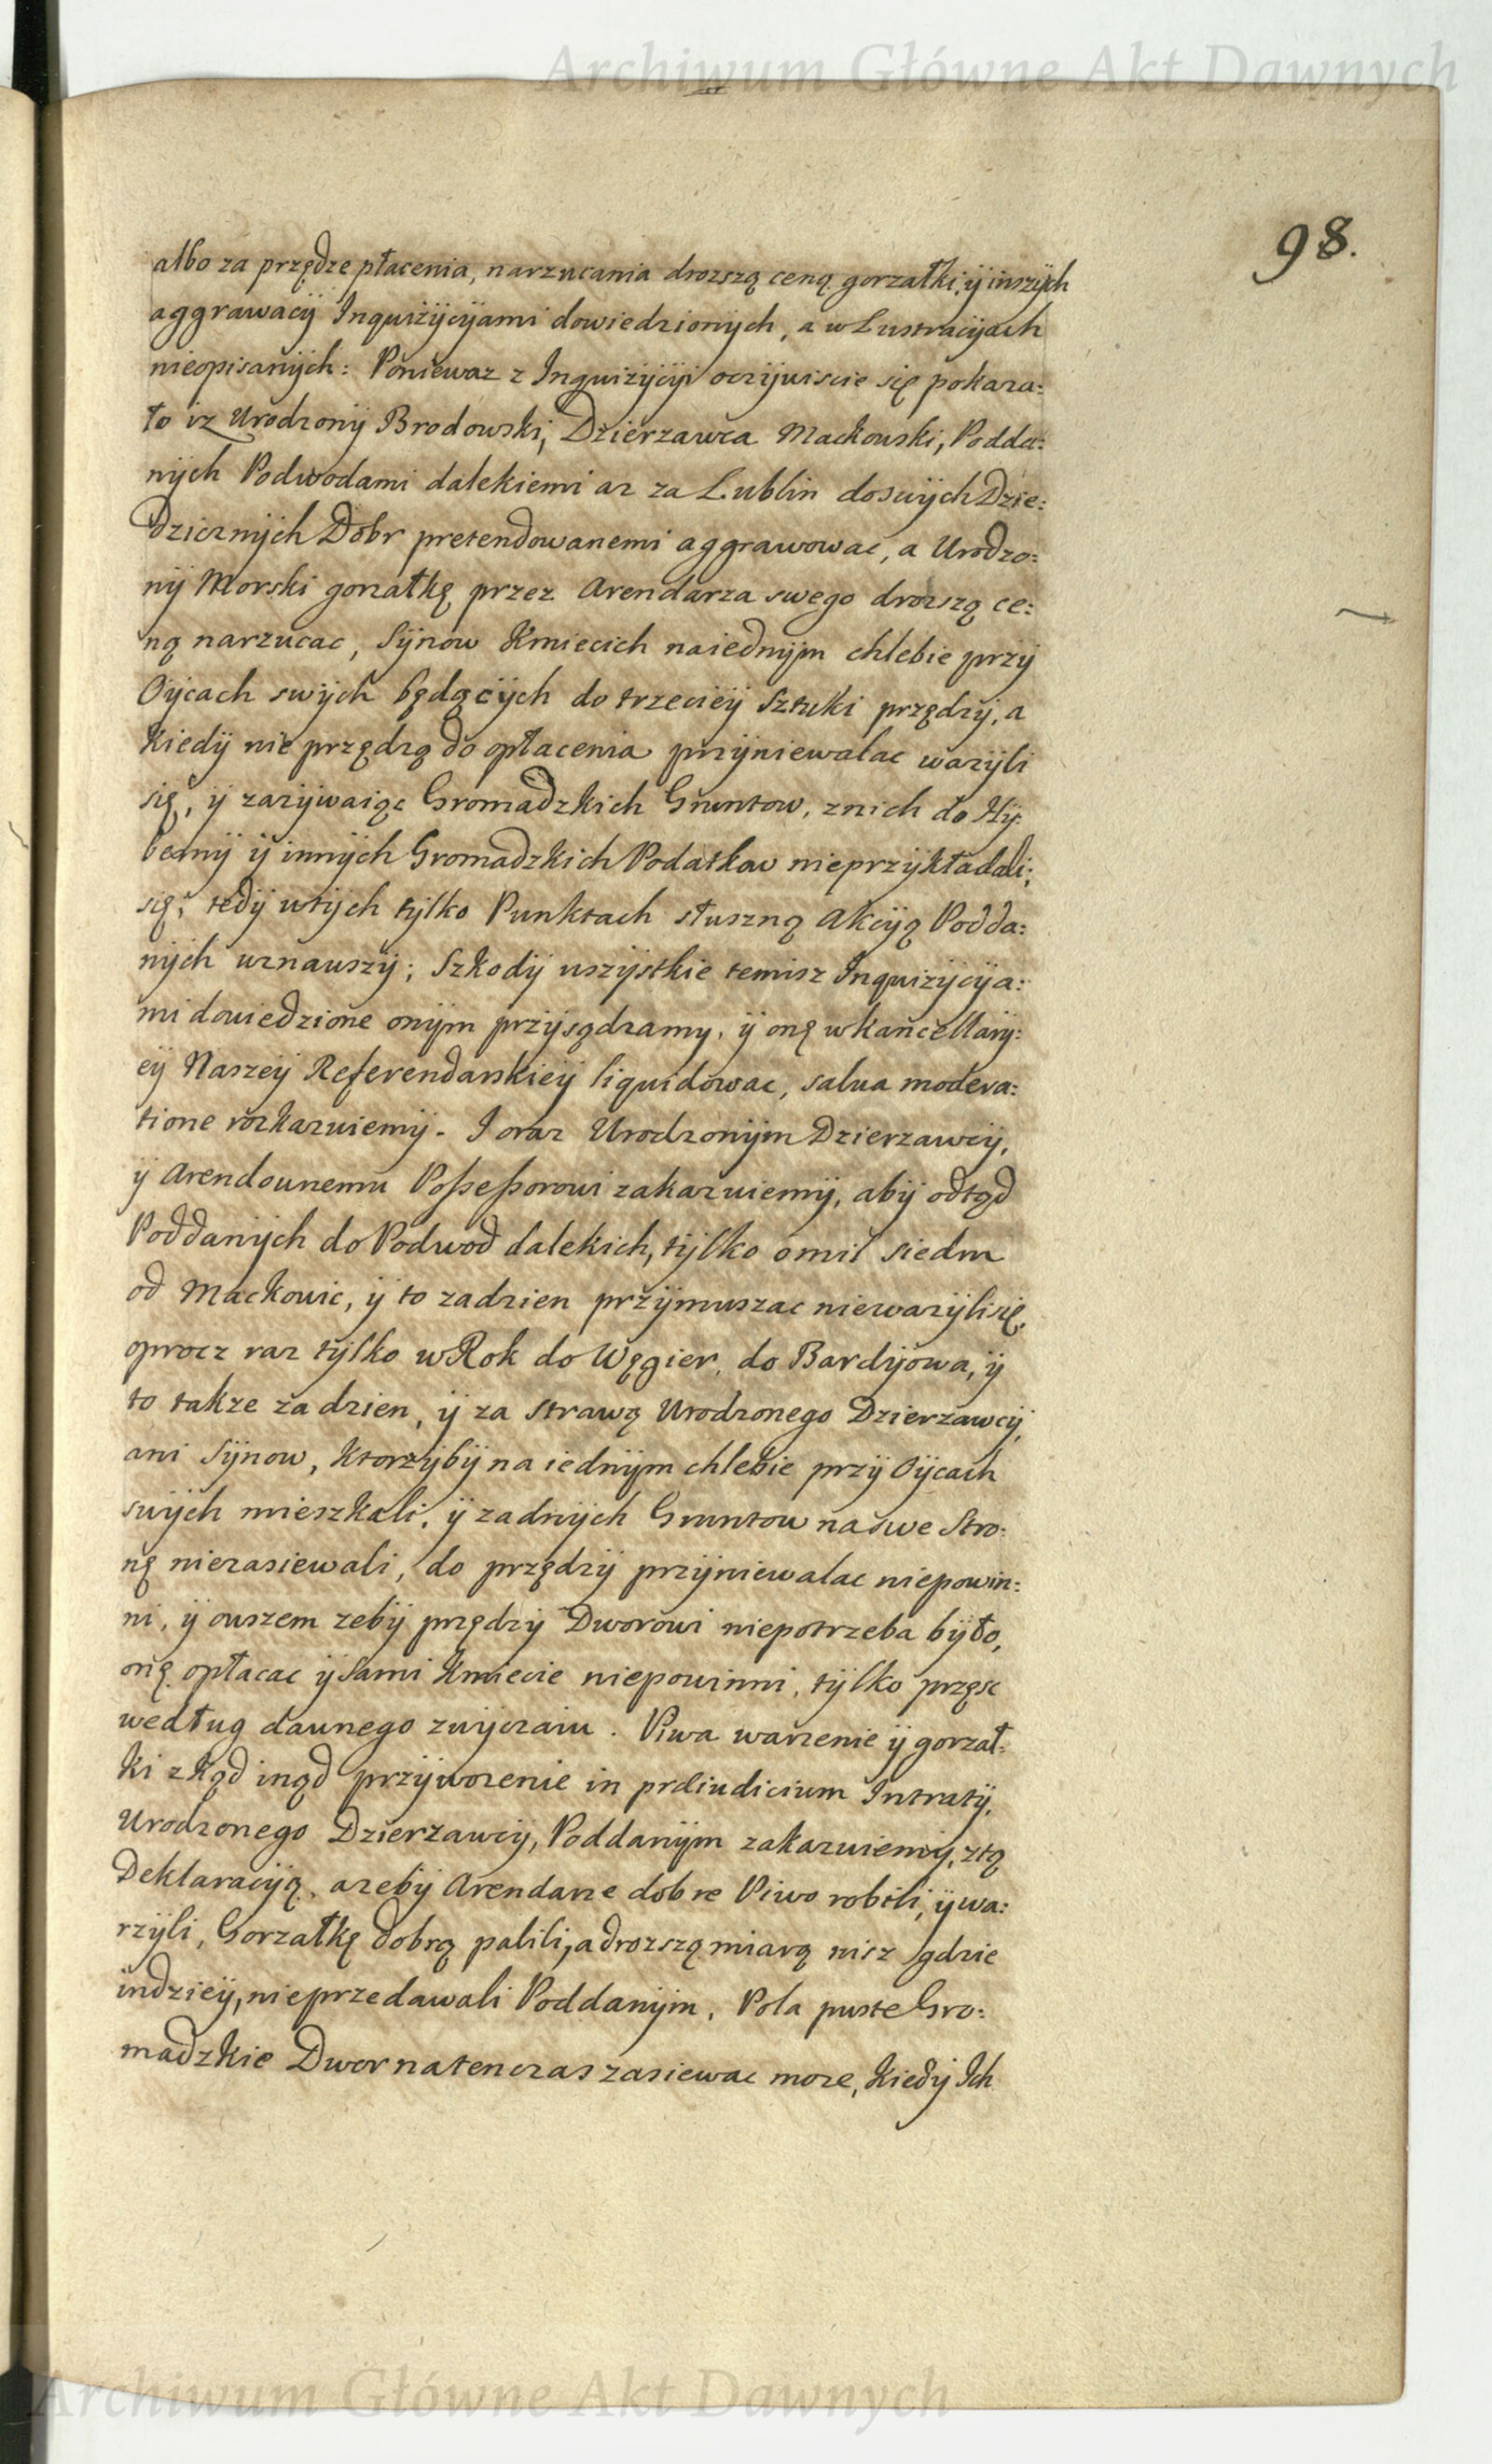 Archiwum Główne Akt Dawnych
98.
albo za przędze płacenia, narzucania drozszą ceną gorzałki, ÿ inszÿch
aggrawacÿi Inquizÿcÿiami dowiedzionÿch, a w Lustracÿach
nieopisanÿch: Poniewaz z Inquizÿcÿi oczÿwiscie się pokaza:
ło iz Urodzonÿ Brodowski, Dzierzawca Mackowski, Podda:
nÿch Podwodami dalekiemi az za Lublin do swÿch Dzie:
dzicznÿch Dobr pretendowanemi aggrawowac, a Urodzo:
nÿ Morski gorzałkę przez Arendarza swego drozszą ce:
ną narzucac, Sÿnow Kmiecich na iednÿm chlebie przÿ
Oÿcach swÿch będącÿch do trzecieÿ Sztuki przędzÿ, a
kiedÿ nie przędzą do opłacenia przÿniewalac wazÿli
się, ÿ zazÿwaiąc Gromadzkich Gruntow, z nich do Hÿ:
bernÿ ÿ innÿch Gromadzkich Podatkow nieprzÿkładali;
się; tedÿ w tÿch tÿlko Punktach słuszną Akcÿą Podda:
nÿch uznawszÿ; Szkodÿ wszÿstkie temisz Inquizÿcÿa:
mi dowiedzione onÿm przÿsądzamy, ÿ onę w kancellarÿ:
eÿ Naszeÿ Referendarskieÿ liquidowac, salva modera:
tione rozkazuiemÿ. I oraz Urodzonÿm Dzierzawcÿ,
ÿ Arendownemu Possessorowi zakazuiemÿ, abÿ odtąd
Poddanÿch do Podwod dalekich, tÿlko o mil siedm
od Mackowic, ÿ to za dzien przÿmuszac niewazÿli się,
oprocz raz tÿlko w Rok do Węgier, do Bardÿowa, ÿ
to takze za dzien, ÿ za strawą Urodzonego Dzierzawcÿ,
ani Sÿnow, ktorzÿbÿ na iednÿm chlebie przÿ Oÿcach
swÿch mieszkali, ÿ zadnÿch Gruntow na swe Stro:
nę niezasiewali, do przędzÿ przÿniewalac niepowin:
ni, ÿ owszem zebÿ przędzÿ Dworowi niepotrzeba bÿło,
onę opłacac ÿ sami Kmiecie niepowinni, tÿlko prząsc
według dawnego zwÿczaiu. Piwa warzenie ÿ gorzał:
ki zkąd inąd przÿwozenie in præiudicium Intratÿ,
Urodzonego Dzierzawcÿ, Poddanÿm zakazuiemÿ, z tą
Deklaracÿą, azebÿ Arendarze dobre Piwo robili, ÿ wa:
rzÿli, Gorzałkę dobrą palili, a drozszą miarą nisz gdzie
indzieÿ, nieprzedawali Poddanÿm. Pola puste Gro:
madzkie Dwor natenczas zasiewac moze, kiedÿ Ich
Archiwum Główne Akt Dawnych